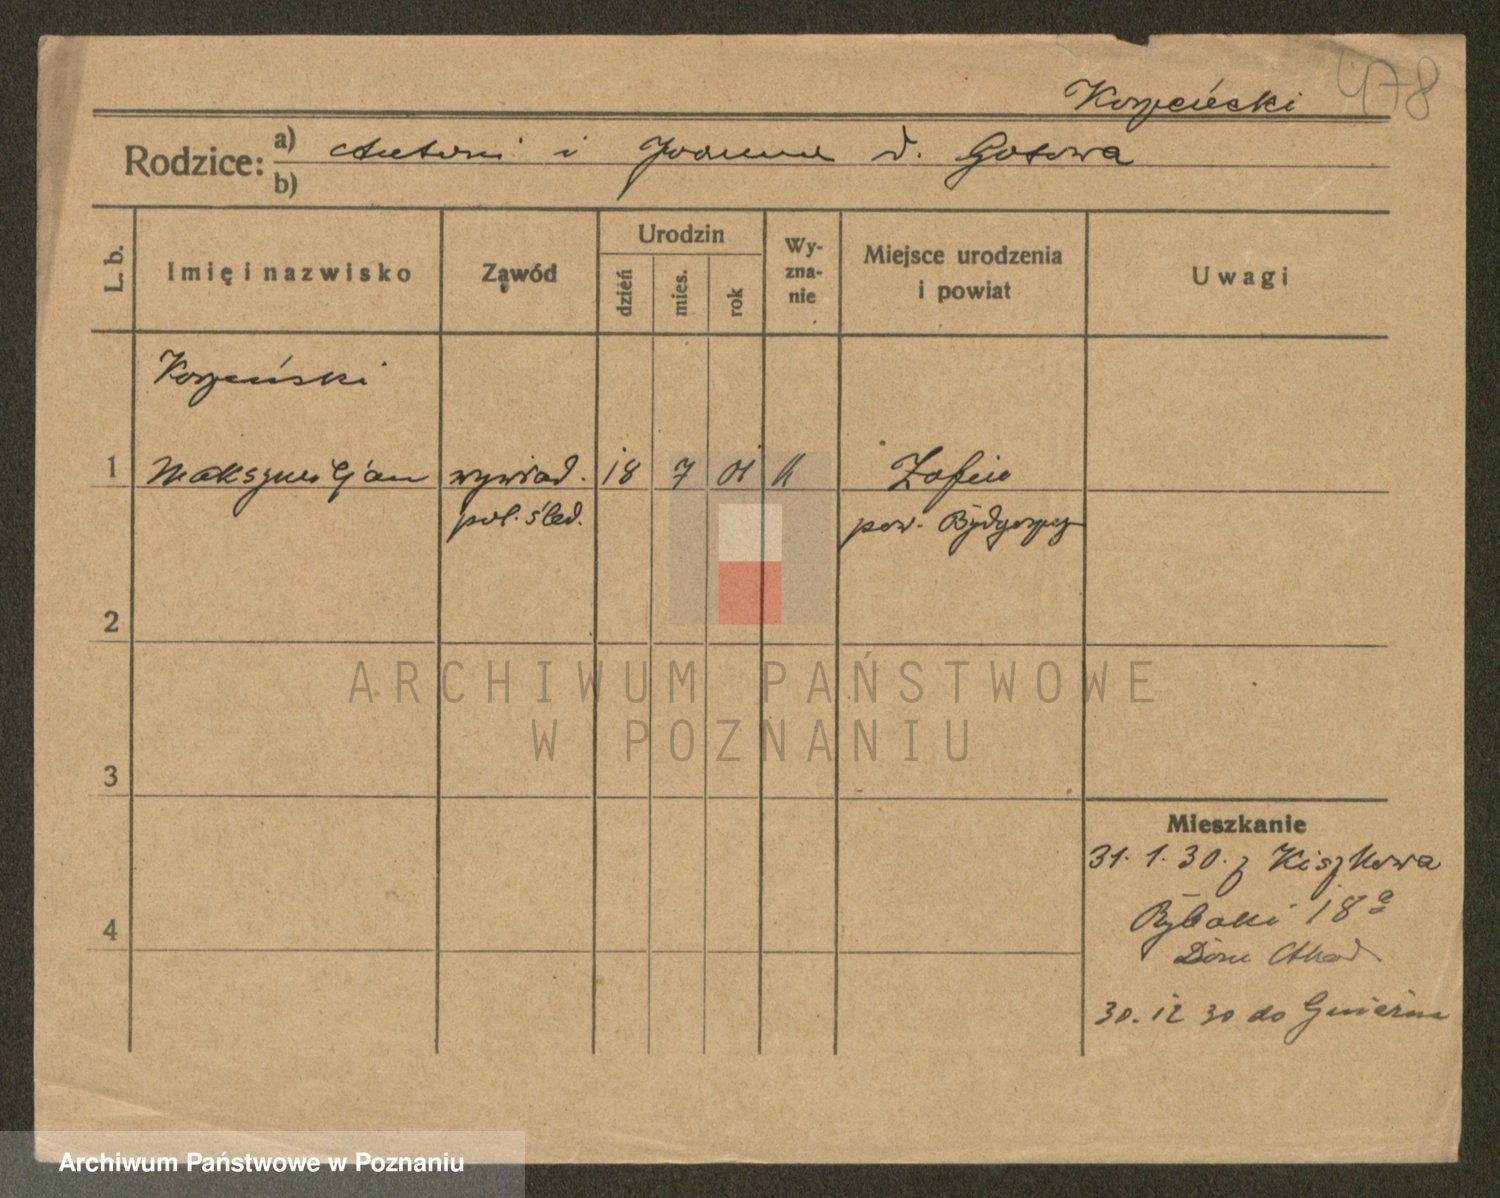 478
Korzeński
Rodzice: a) Antoni i Joanna d. Gotowa
b)
L. b.
Imię i nazwisko
Zawód
Urodzin
dzień
mies.
rok
Wy-
zna-
nie
Miejsce urodzenia
i powiat
Uwagi
Korzeński
1 Maksymiljan wywiad. 18 7 01 k
pol. śled. pow. Bydgoszcz
2
ARCHIWUM PAŃSTWOWE
W POZNANIU
3
Mieszkanie
31. 1. 30. z Kiszkowa
Rybaki 18a
4
Dom Akad
30. 12 30 do Gniezna
Archiwum Państwowe w Poznaniu